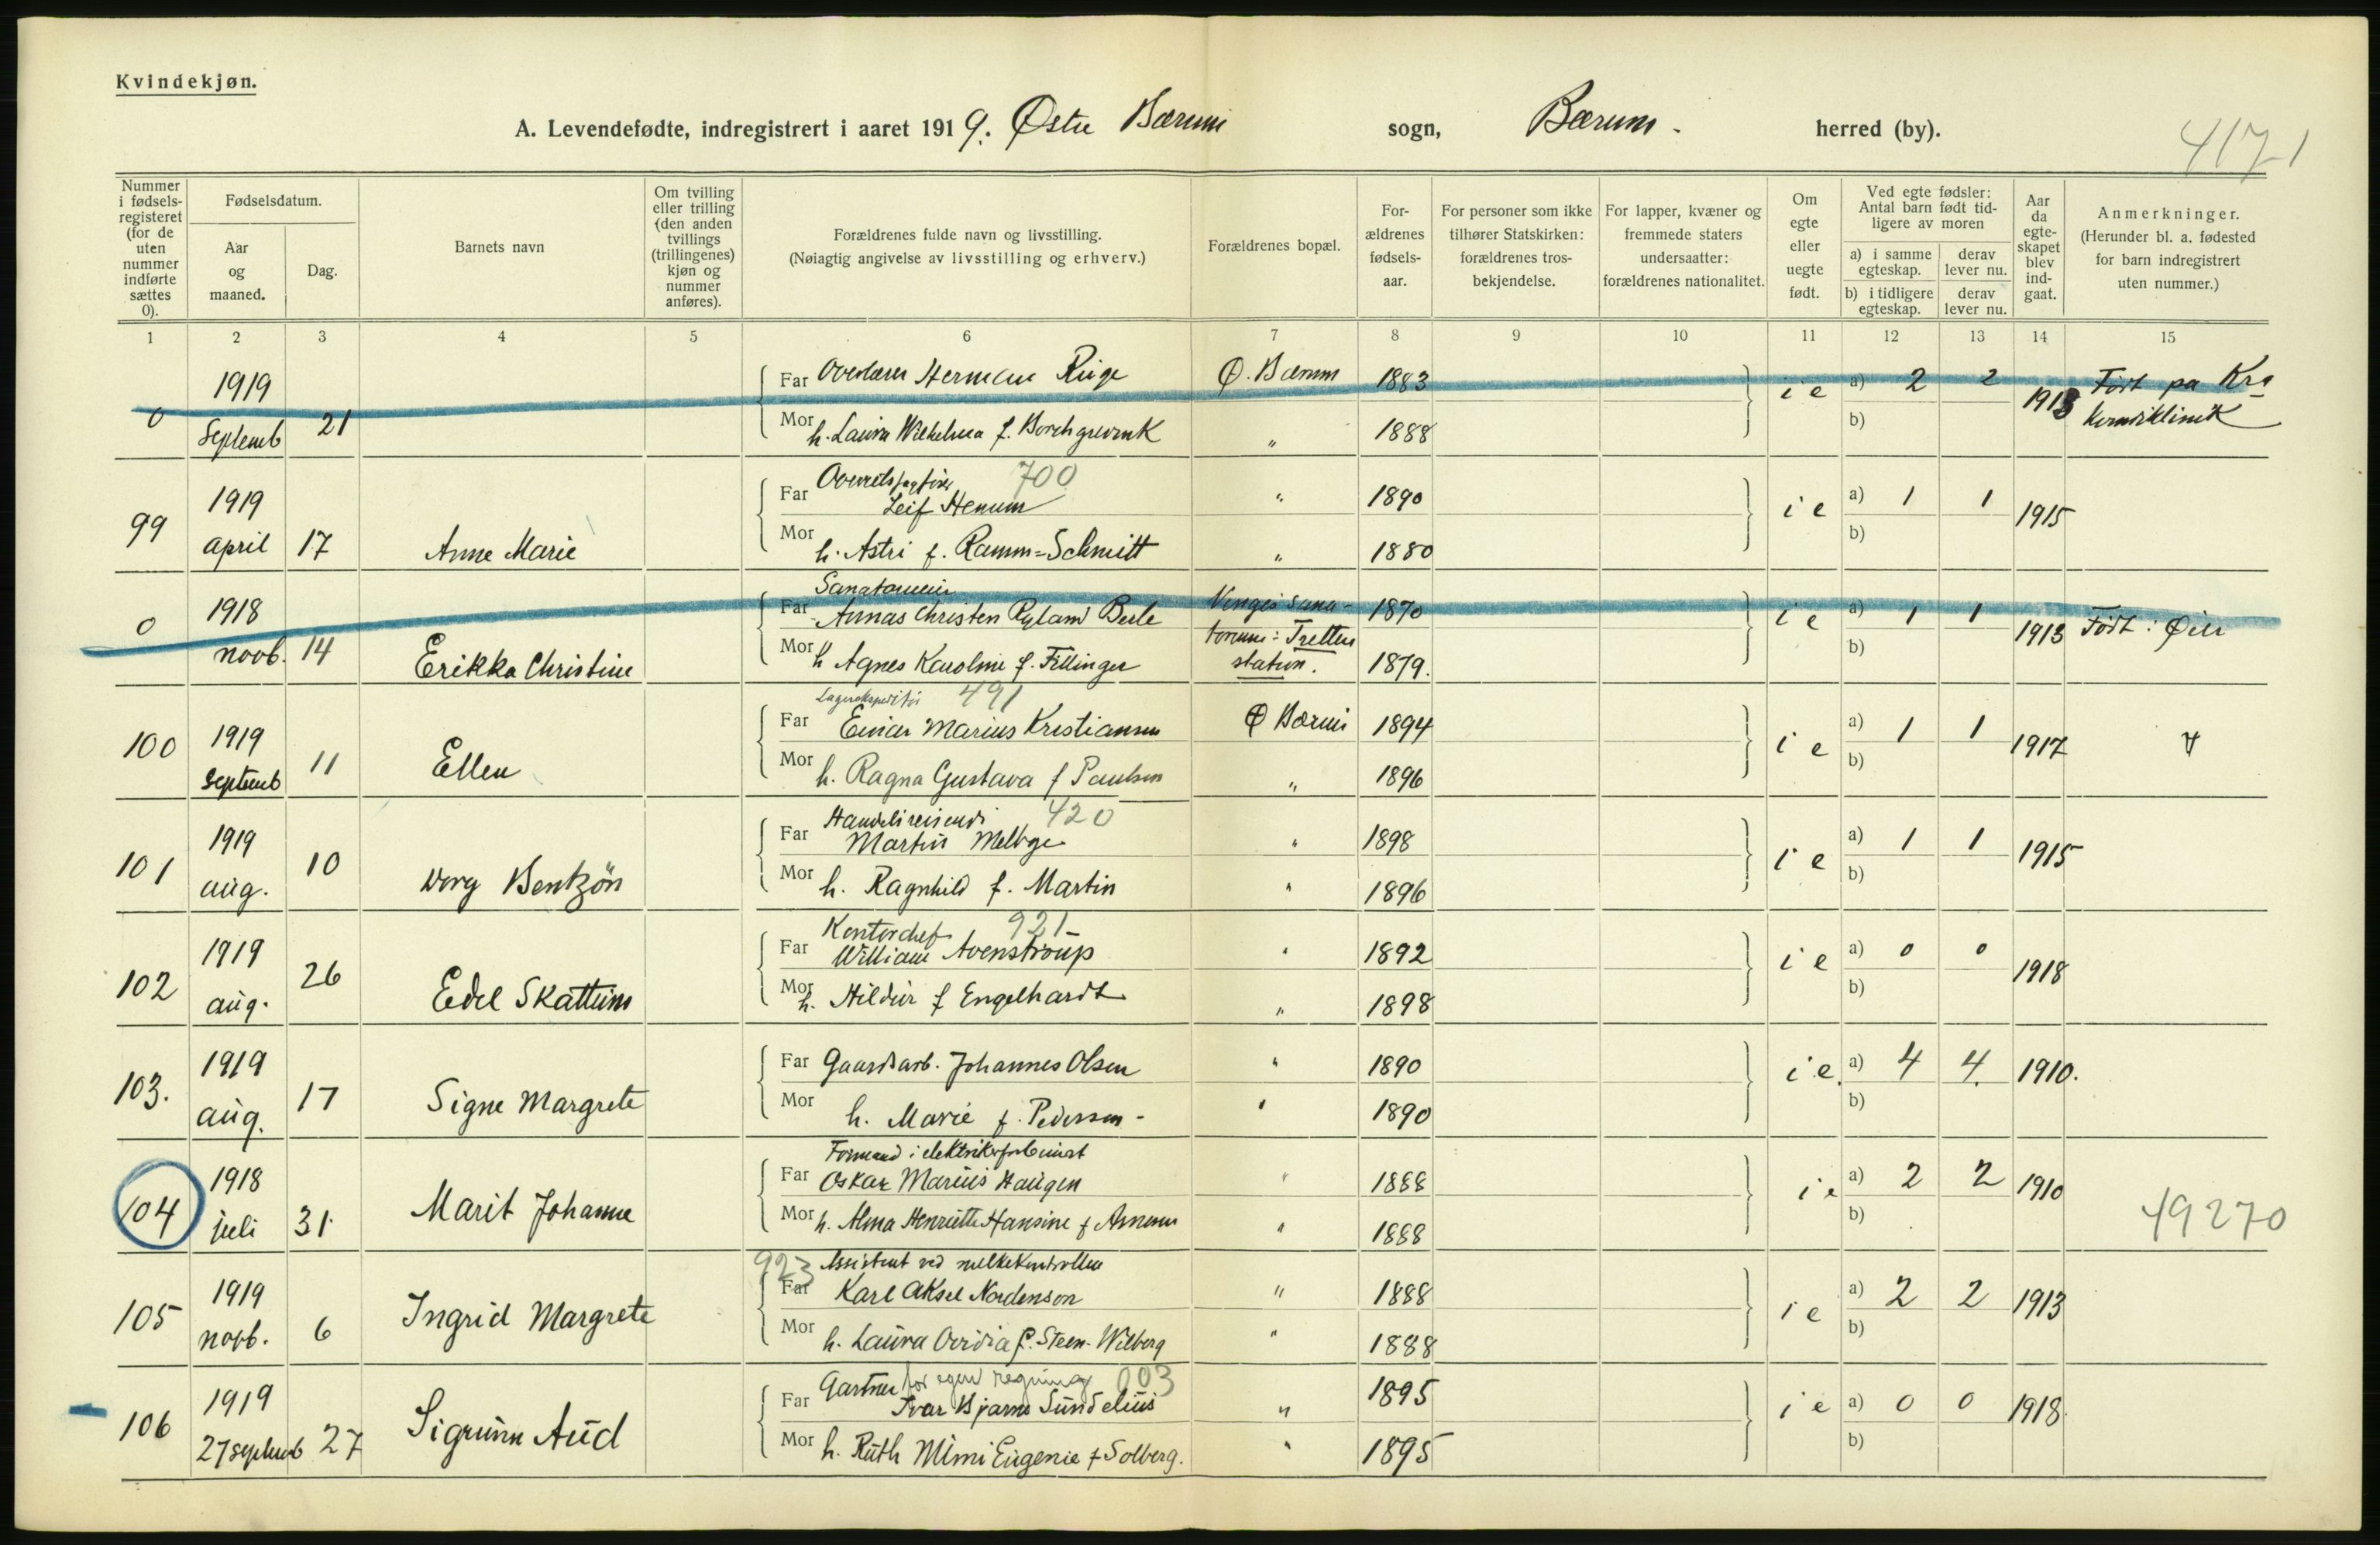 Kvindekjøn.
A. Levendefødte, indregistrert i aaret 1919. Østre Bærum sogn, Bærum. herred (by).
4171
Nummer i fødsels-registeret (for de uten nummer indførte sættes 0).
Fødselsdatum.
Aar og maaned.
Dag.
Barnets navn
Om tvilling eller trilling (den anden tvillings (trillingenes) kjøn og nummer anføres).
Forældrenes fulde navn og livsstilling.
(Nøiagtig angivelse av livsstilling og erhverv.)
Forældrenes bopæl.
For-ældrenes fødsels-aar.
For personer som ikke tilhører Statskirken: forældrenes tros-bekjendelse.
For lapper, kvæner og fremmede staters undersaatter: forældrenes nationalitet.
Om egte eller uegte født.
Ved egte fødsler: Antal barn født tid-ligere av moren
a) i samme egteskap. derav lever nu.
b) i tidligere egteskap. derav lever nu.
Aar da egte-skapet blev ind-gaat.
Anmerkninger.
(Herunder bl. a. fødested for barn indregistrert uten nummer.)
1 2 3 4 5 6 7 8 9 10 11 12 13 14 15
0 1919 Septemb 21
Far Overlærer Herman Ruge Ø. Bærum 1883 i e a) 2 2 1913 Født paa Kra
Mor h. Laura Wilhelma f. Borchgrevink " 1888 b) Kvindeklinik
99 1919 april 17 Anne Marie
Overretssagfører 700
Far Leif Henum " 1890 i e a) 1 1 1915
Mor h. Astri f. Ramm-Schmitt " 1880 b)
0 1918 novb. 14 Erikka Christine
Far Annas Christen Ryland 1870 i e a) 1 1 1913 Født i Øier
Mor h Agnes Karoline f. Fillinger station. 1879. b)
100 1919 Septemb 11 Ellen
Lagerekspeditør 491
Far Einar Marius Kristiansen Ø Bærum 1894 i e a) 1 1 1917
Mor h. Ragna Gustava f Paulsen " 1896 b)
101 1919 aug. 10 Bentzön
Handelsreisende 420
Far Martin " 1898 i e a) 1 1 1915
Mor h. Ragnhild f. Martin " 1896 b)
102 1919 aug. 26 Edel Skattum
Kontorchef 921
Far William Avenstroup " 1892 i e a) 0 0 1918
Mor h. Hildur f Engelhardt " 1898 b)
103. 1919 aug. 17 Signe Margrete
Far Gaardsarb. Johannes Olsen " 1890 i e. a) 4 4. 1910.
Mor h. Marie f. Pedersen - " 1890 b)
104 1918 juli 31 Marit Johanne
Far Oskar Marius Haugen " 1888 i e a) 2 2 1910
Mor h. Alma Henriette Hansine f Arnesen " 1888 b) 49270
105 1919 novb. 6 Ingrid Margrete
923 Assistent ved melkekontrollen
Far Karl Aksel Nordenson " 1888 i e a) 2 2 1913
Mor h. Laura Ovidia f. Steen-Wilberg " 1888 b)
106 1919 27 septemb 27 Sigrunn Aud
Gartner for egen regning 003
Far Ivar Bjarne Sundelius " 1895 i e a) 0 0 1918.
Mor h. Ruth Mimi Eugenie f Solberg. " 1895 b)